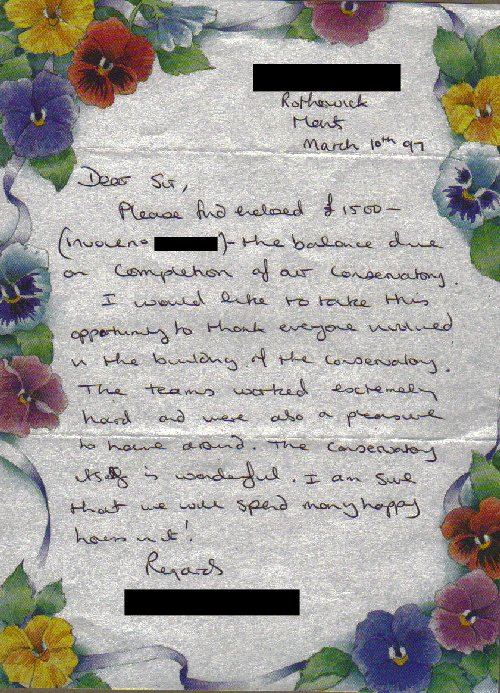 Rotherwick
Hants
March 10th 97
Dear Sir,
Please find enclosed £1500 —
(Invoice no ) - the balance due
on completion of our conservatory.
I would like to take this
opportunity to thank everyone involved
in the building of the conservatory.
The teams worked extremely
hard and were also a pleasure
to have around. The conservatory
itself is wonderful. I am sure
that we will spend many happy
hours in it!
Regards